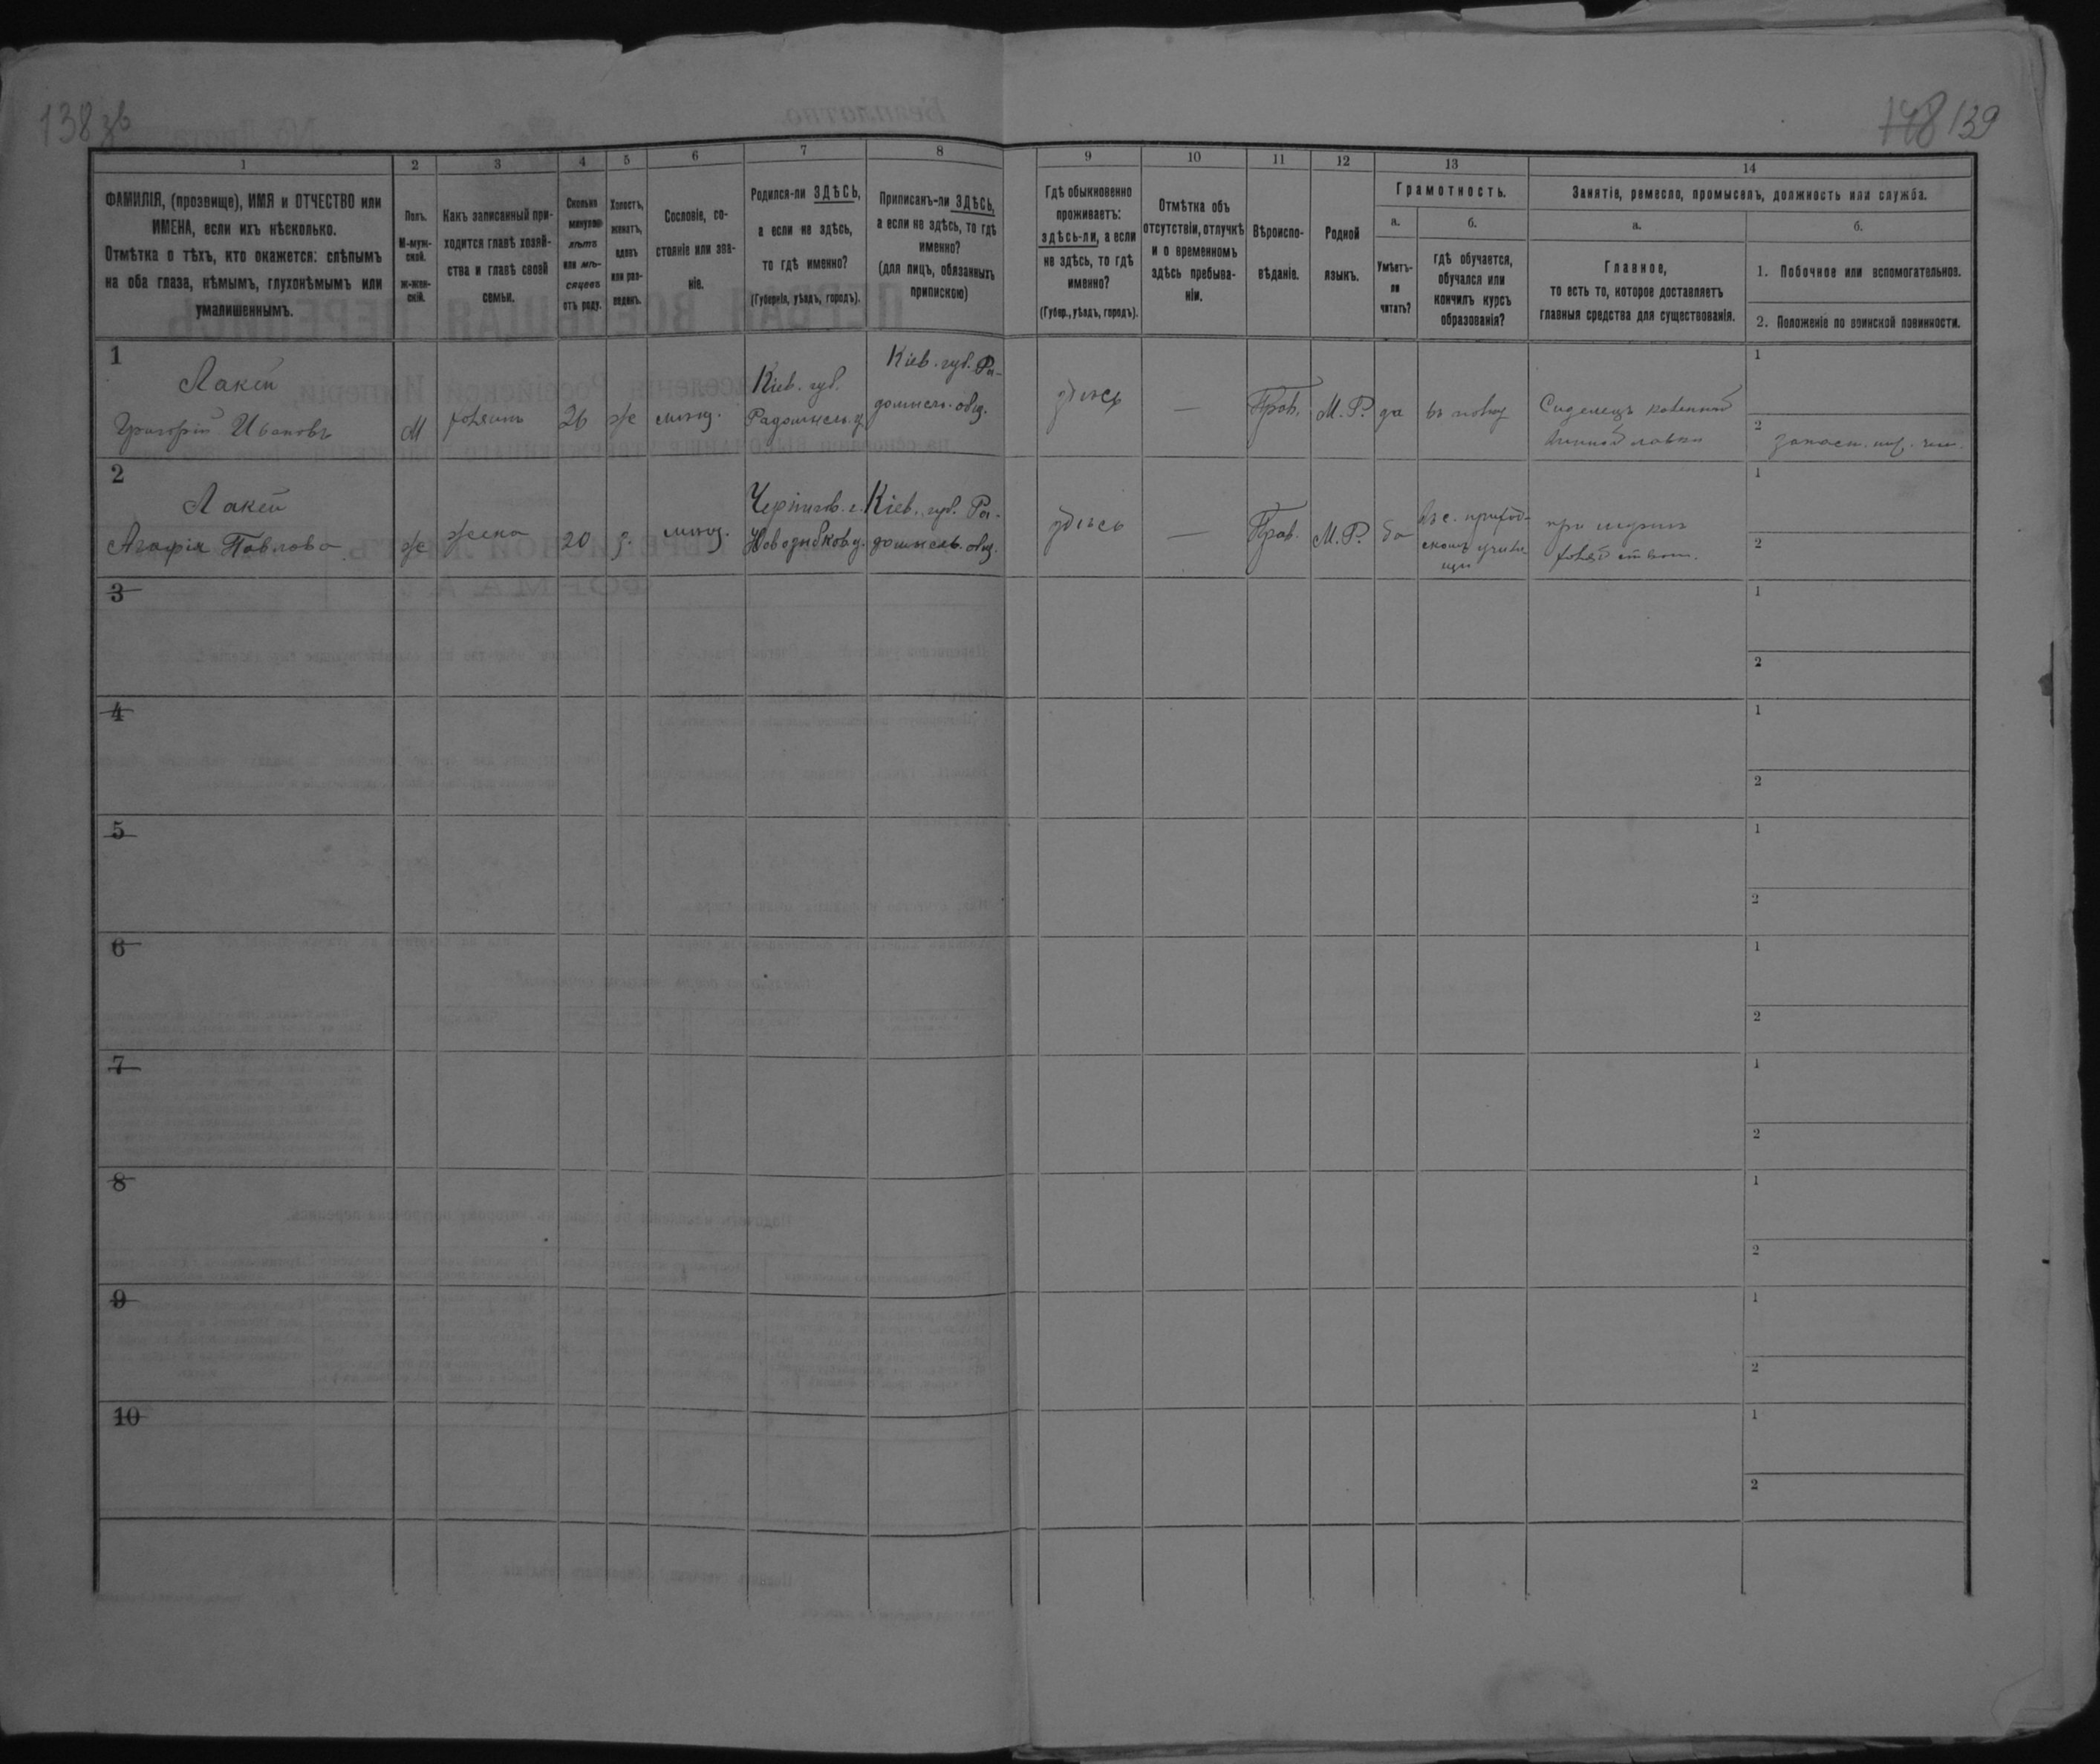 138 зв
148 139
1
2
3
4
5
6
7
8
9
10
11
12
13
14
ФАМИЛІЯ, (прозвище), ИМЯ и ОТЧЕСТВО или
ИМЕНА, если ихъ нѣсколько.
Отмѣтка о тѣхъ, кто окажется: слѣпымъ
на оба глаза, нѣмымъ, глухонѣмымъ или
умалишеннымъ.
Полъ.
М-муж-
ской.
ж-жен-
скій.
Какъ записанный при-
ходится главѣ хозяй-
ства и главѣ своей
семьи.
Сколько
минуло
лѣтъ
или мѣ-
сяцевъ
отъ роду.
Холостъ,
женатъ,
вдовъ
или раз-
веденъ.
Сословіе, со-
стояніе или зва-
ніе.
Родился-ли ЗДѢСЬ,
а если не здѣсь,
то гдѣ именно?
(Губернія, уѣздъ, городъ).
Приписанъ-ли ЗДѢСЬ,
а если не здѣсь, то гдѣ
именно?
(для лицъ, обязанныхъ
припискою)
Гдѣ обыкновенно
проживаетъ:
здѣсь-ли, а если
не здѣсь, то гдѣ
именно?
(Губер., уѣздъ, городъ).
Отмѣтка объ
отсутствіи, отлучкѣ
и о временномъ
здѣсь пребыва-
ніи.
Вѣроиспо-
вѣданіе.
Родной
языкъ.
Грамотность.
а.
Умѣетъ-
ли
читать?
б.
гдѣ обучается,
обучался или
кончилъ курсъ
образованія?
Занятіе, ремесло, промыселъ, должность или служба.
а.
Главное,
то есть то, которое доставляетъ
главныя средства для существованія.
б.
1. Побочное или вспомогательное.
2. Положеніе по воинской повинности.
1
Лакей
Григорій Ивановъ
М
хозяинъ
26
ж
мѣщ.
Кіев. губ.
Радомысл. у.
Кіев. губ. Ра-
домысл. общ.
здѣсь
—
Прав.
М. Р.
да
Сиделецъ казенной
винной лавки
1
2
запасн.
2
Лакей
Агафія Павлова
ж
жена
20
з.
мѣщ.
Чернигов. г.
Новозыбков. у.
Кіев. губ. Ра-
домысль. общ.
здѣсь
—
Прав.
М. Р.
да
Въ с. приход-
скомъ учили-
щѣ
при мужѣ
хозяйством.
1
2
3
1
2
4
1
2
5
1
2
6
1
2
7
1
2
8
1
2
9
1
2
10
1
2